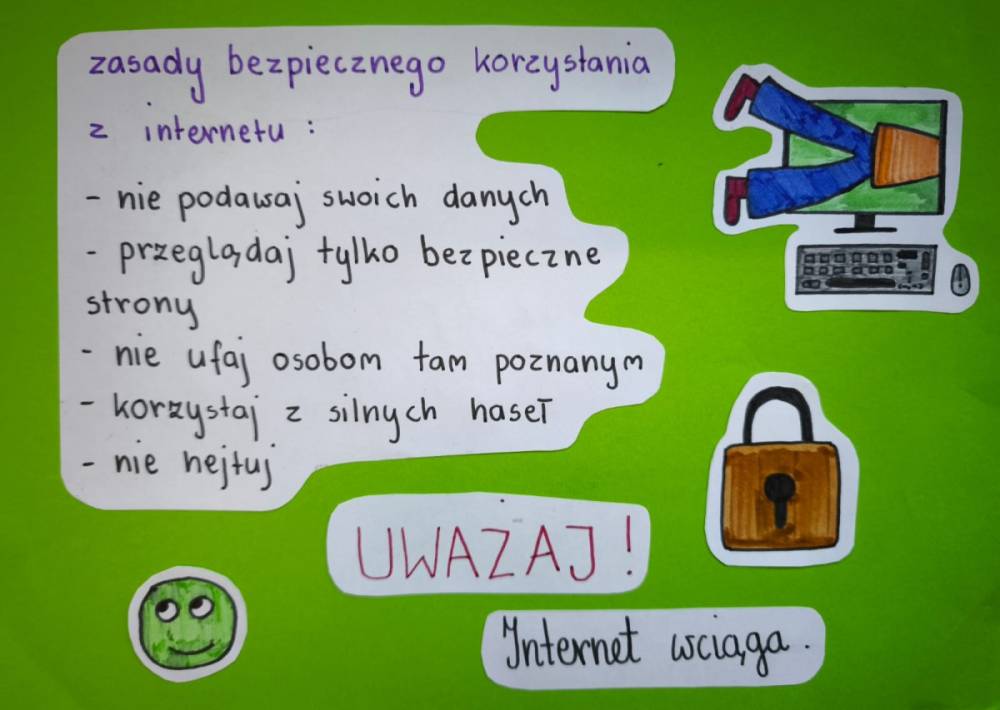 zasady bezpiecznego korzystania
z internetu :
- nie podawaj swoich danych
- przeglądaj tylko bezpieczne
strony
- nie ufaj osobom tam poznanym
- korzystaj z silnych haseł
- nie hejtuj
UWAŻAJ!
Internet wciąga.